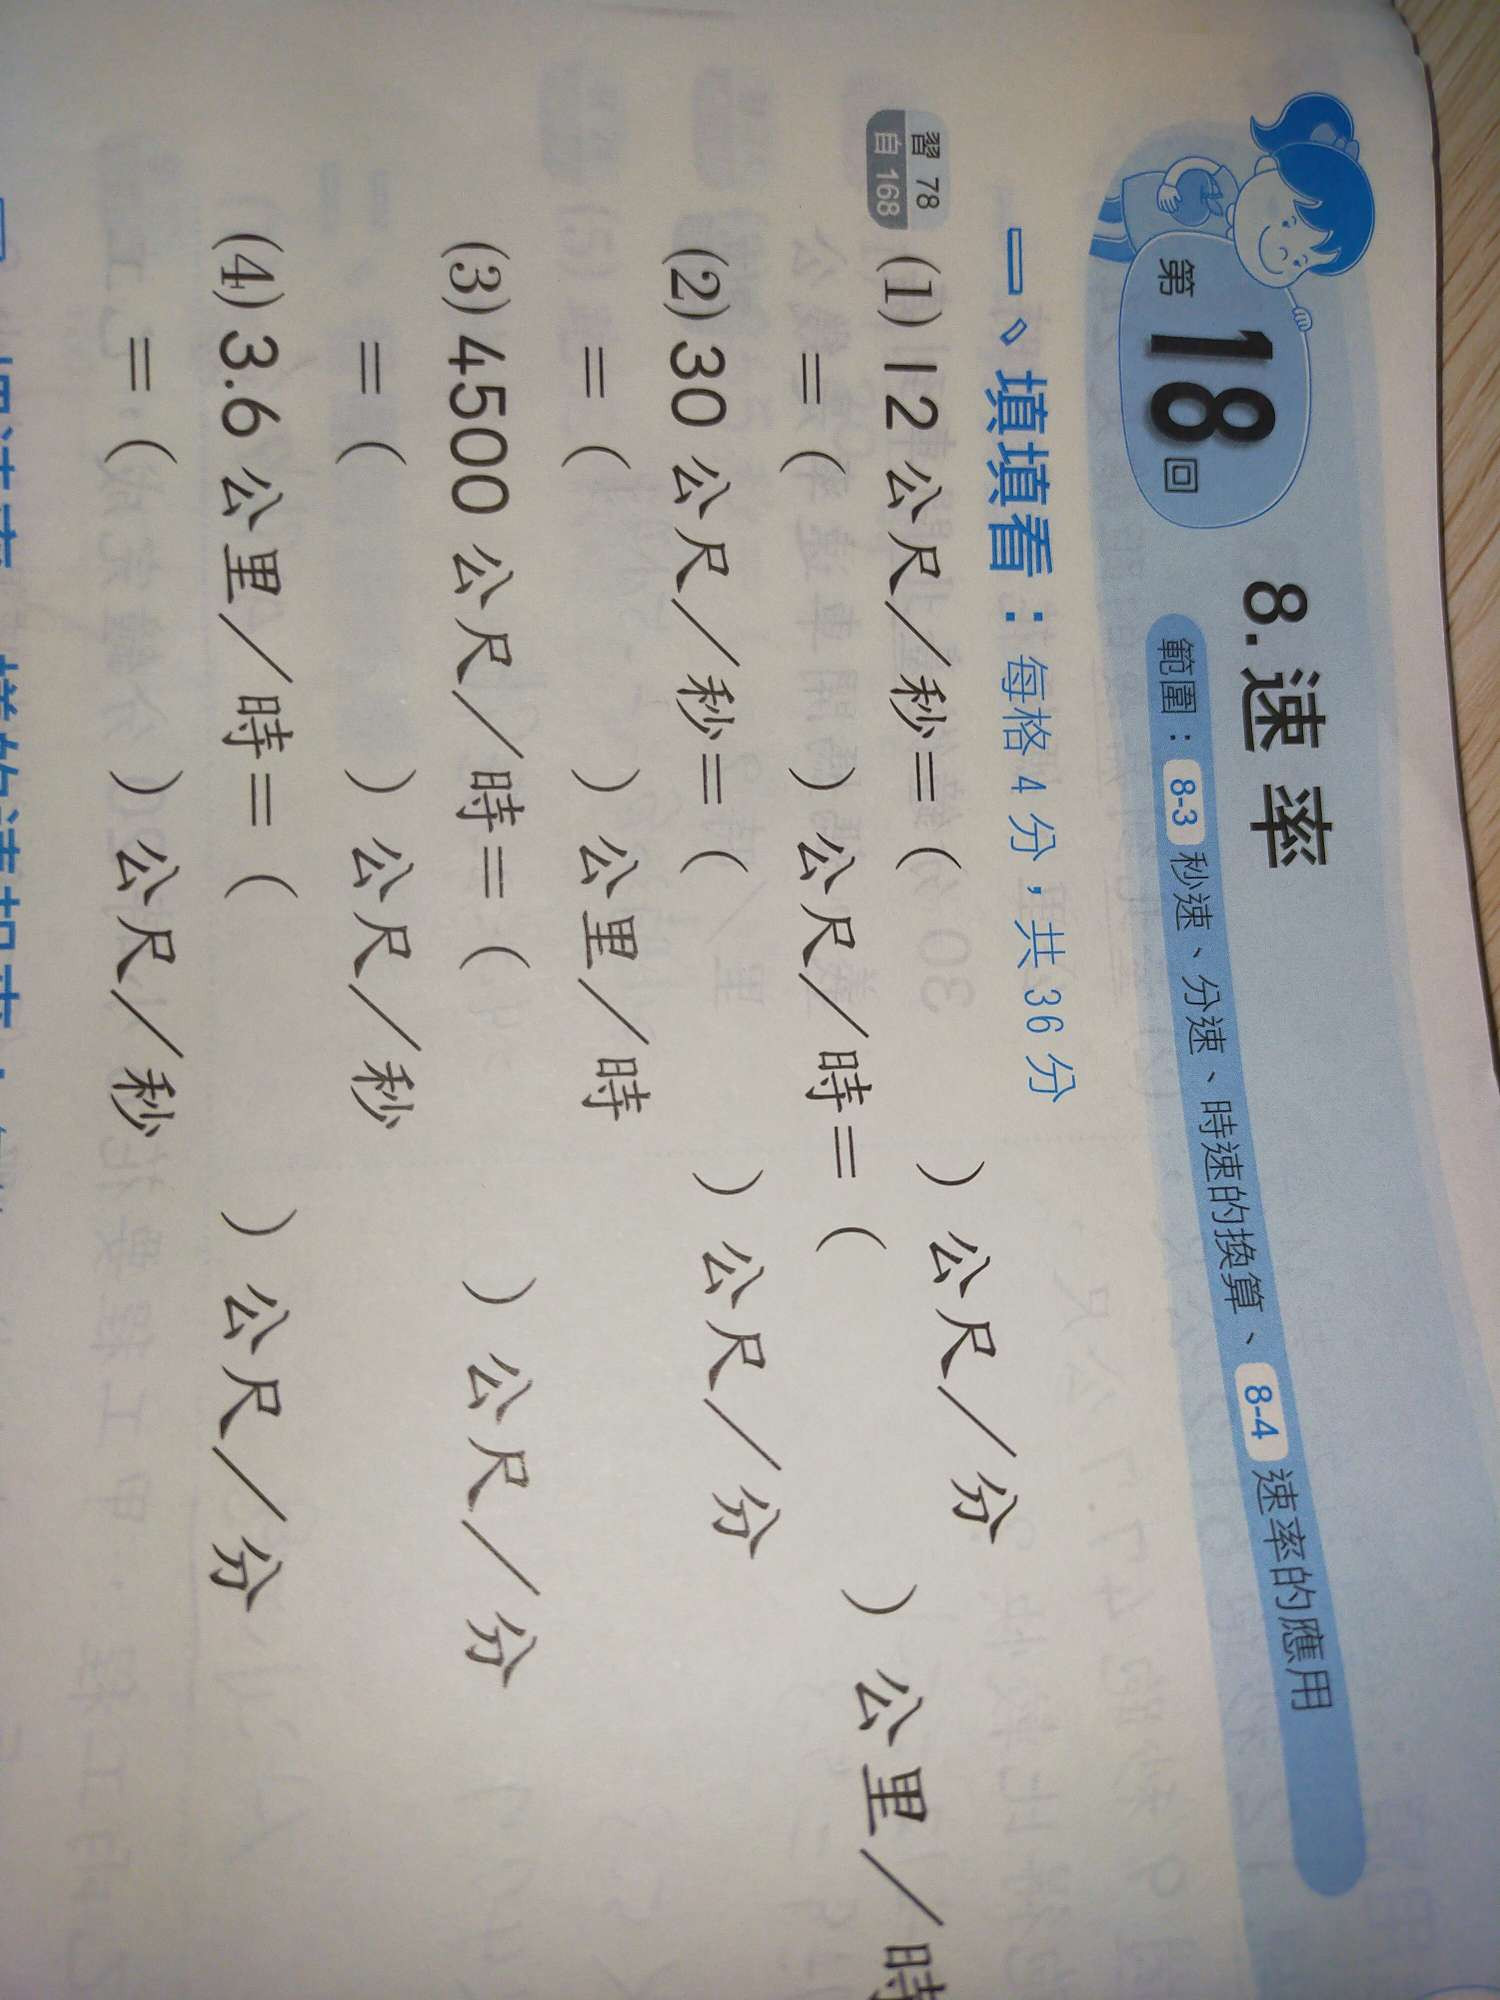 第18回 8.速率
範圍：8-3 秒速、分速、時速的換算、8-4 速率的應用
一、填填看：每格4分，共36分
習 78
自 168
(1) 12公尺／秒＝（ ）公尺／分
＝（ ）公尺／時＝（ ）公里／時
(2) 30公尺／秒＝（ ）公尺／分
＝（ ）公里／時
(3) 4500公尺／時＝（ ）公尺／分
＝（ ）公尺／秒
(4) 3.6公里／時＝（ ）公尺／分
＝（ ）公尺／秒